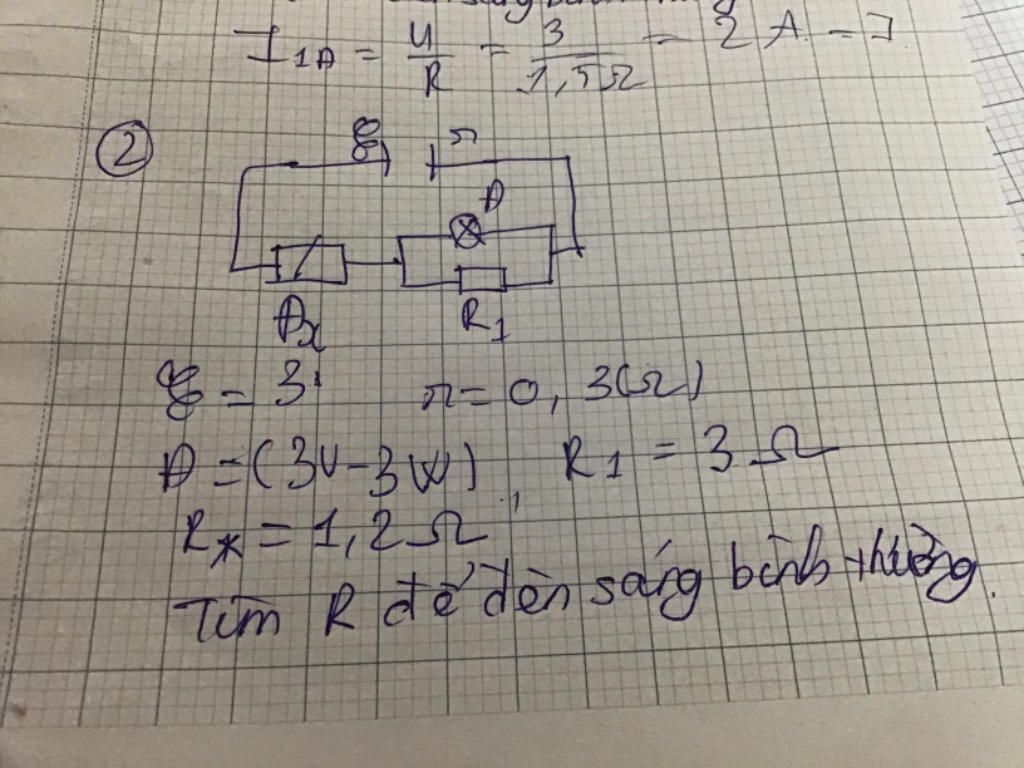 I₁Đ = U/R = 3/1,5Ω = 2 A
②
ℰ r
Đ
R₁
ℰ = 3 r = 0,3(Ω)
Đ = (3V - 3W), R₁ = 3Ω
Rₓ = 1,2Ω
Tìm R để đèn sáng bình thường.